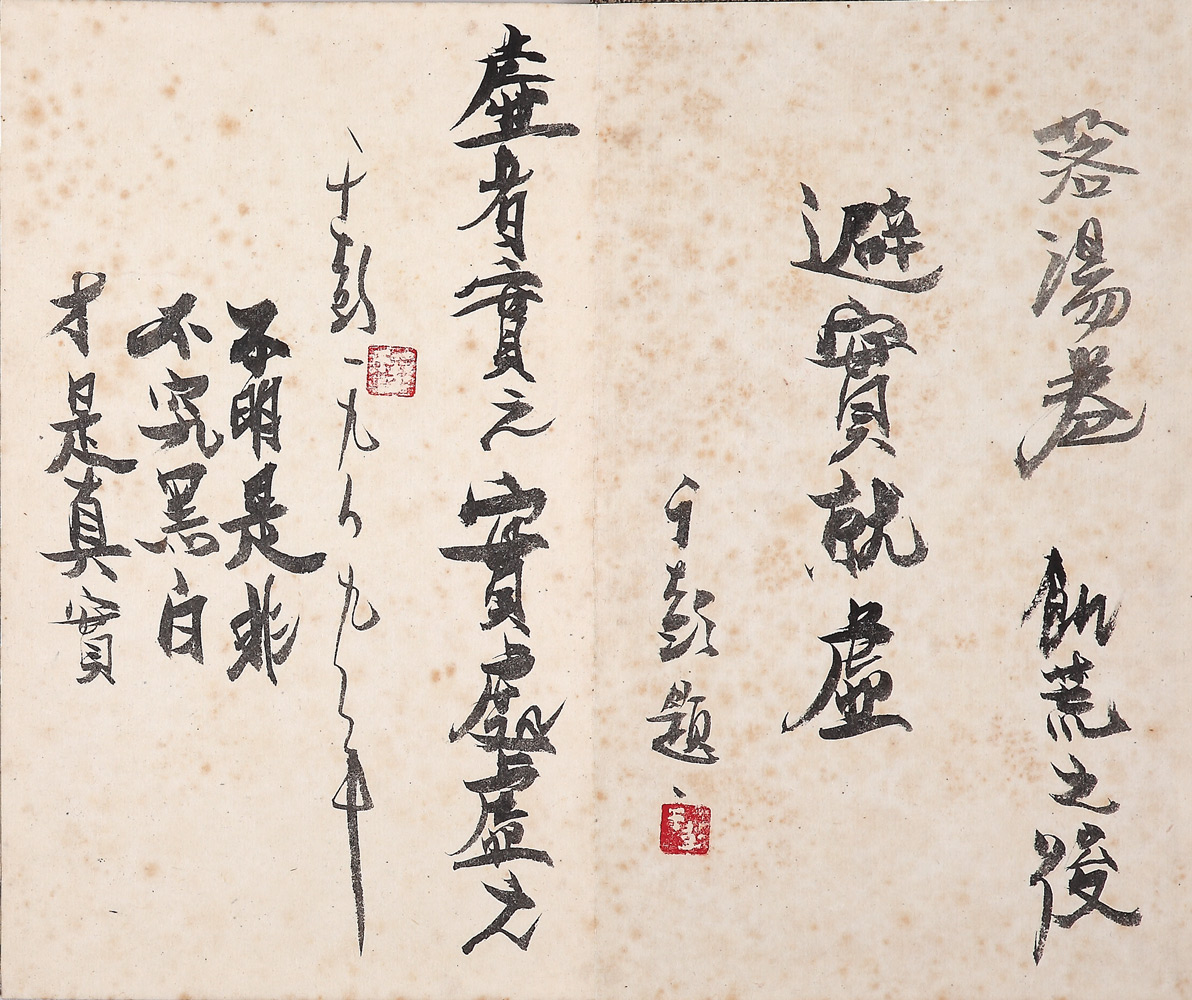 落湯卷 飢荒之後
避實就虛
于彭題
虛者實之實處虛之
于彭一九八九之年
不明是非
不究黑白
才是真實